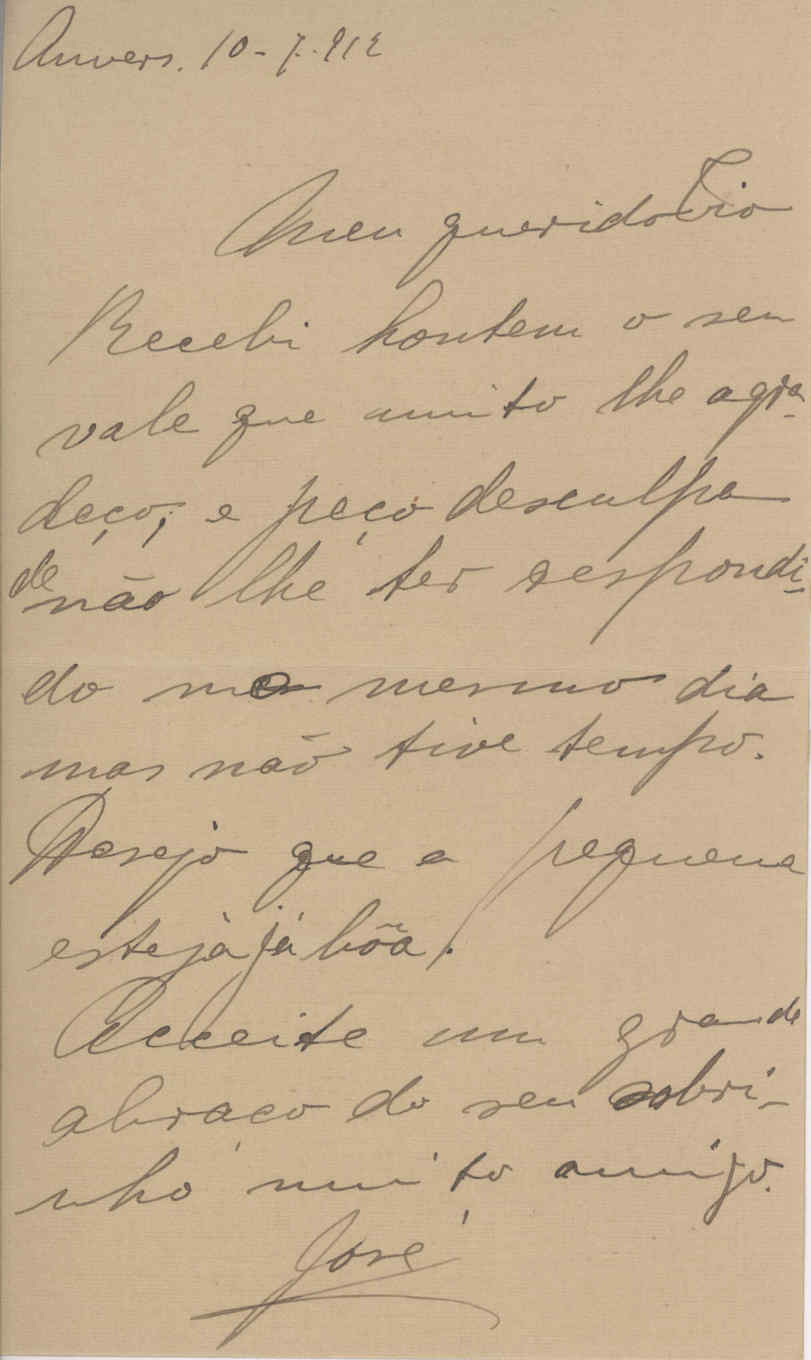 Anvers. 10-7-912
Meu querido Tio
Recebi hontem o seu
vale que muito lhe agra-
deço, e peço desculpa
de não lhe ter respondi-
do no mesmo dia
mas não tive tempo.
Desejo que a pequena
esteja já bôa.
Acceite um grande
abraço do seu sobri-
nho muito amigo.
José